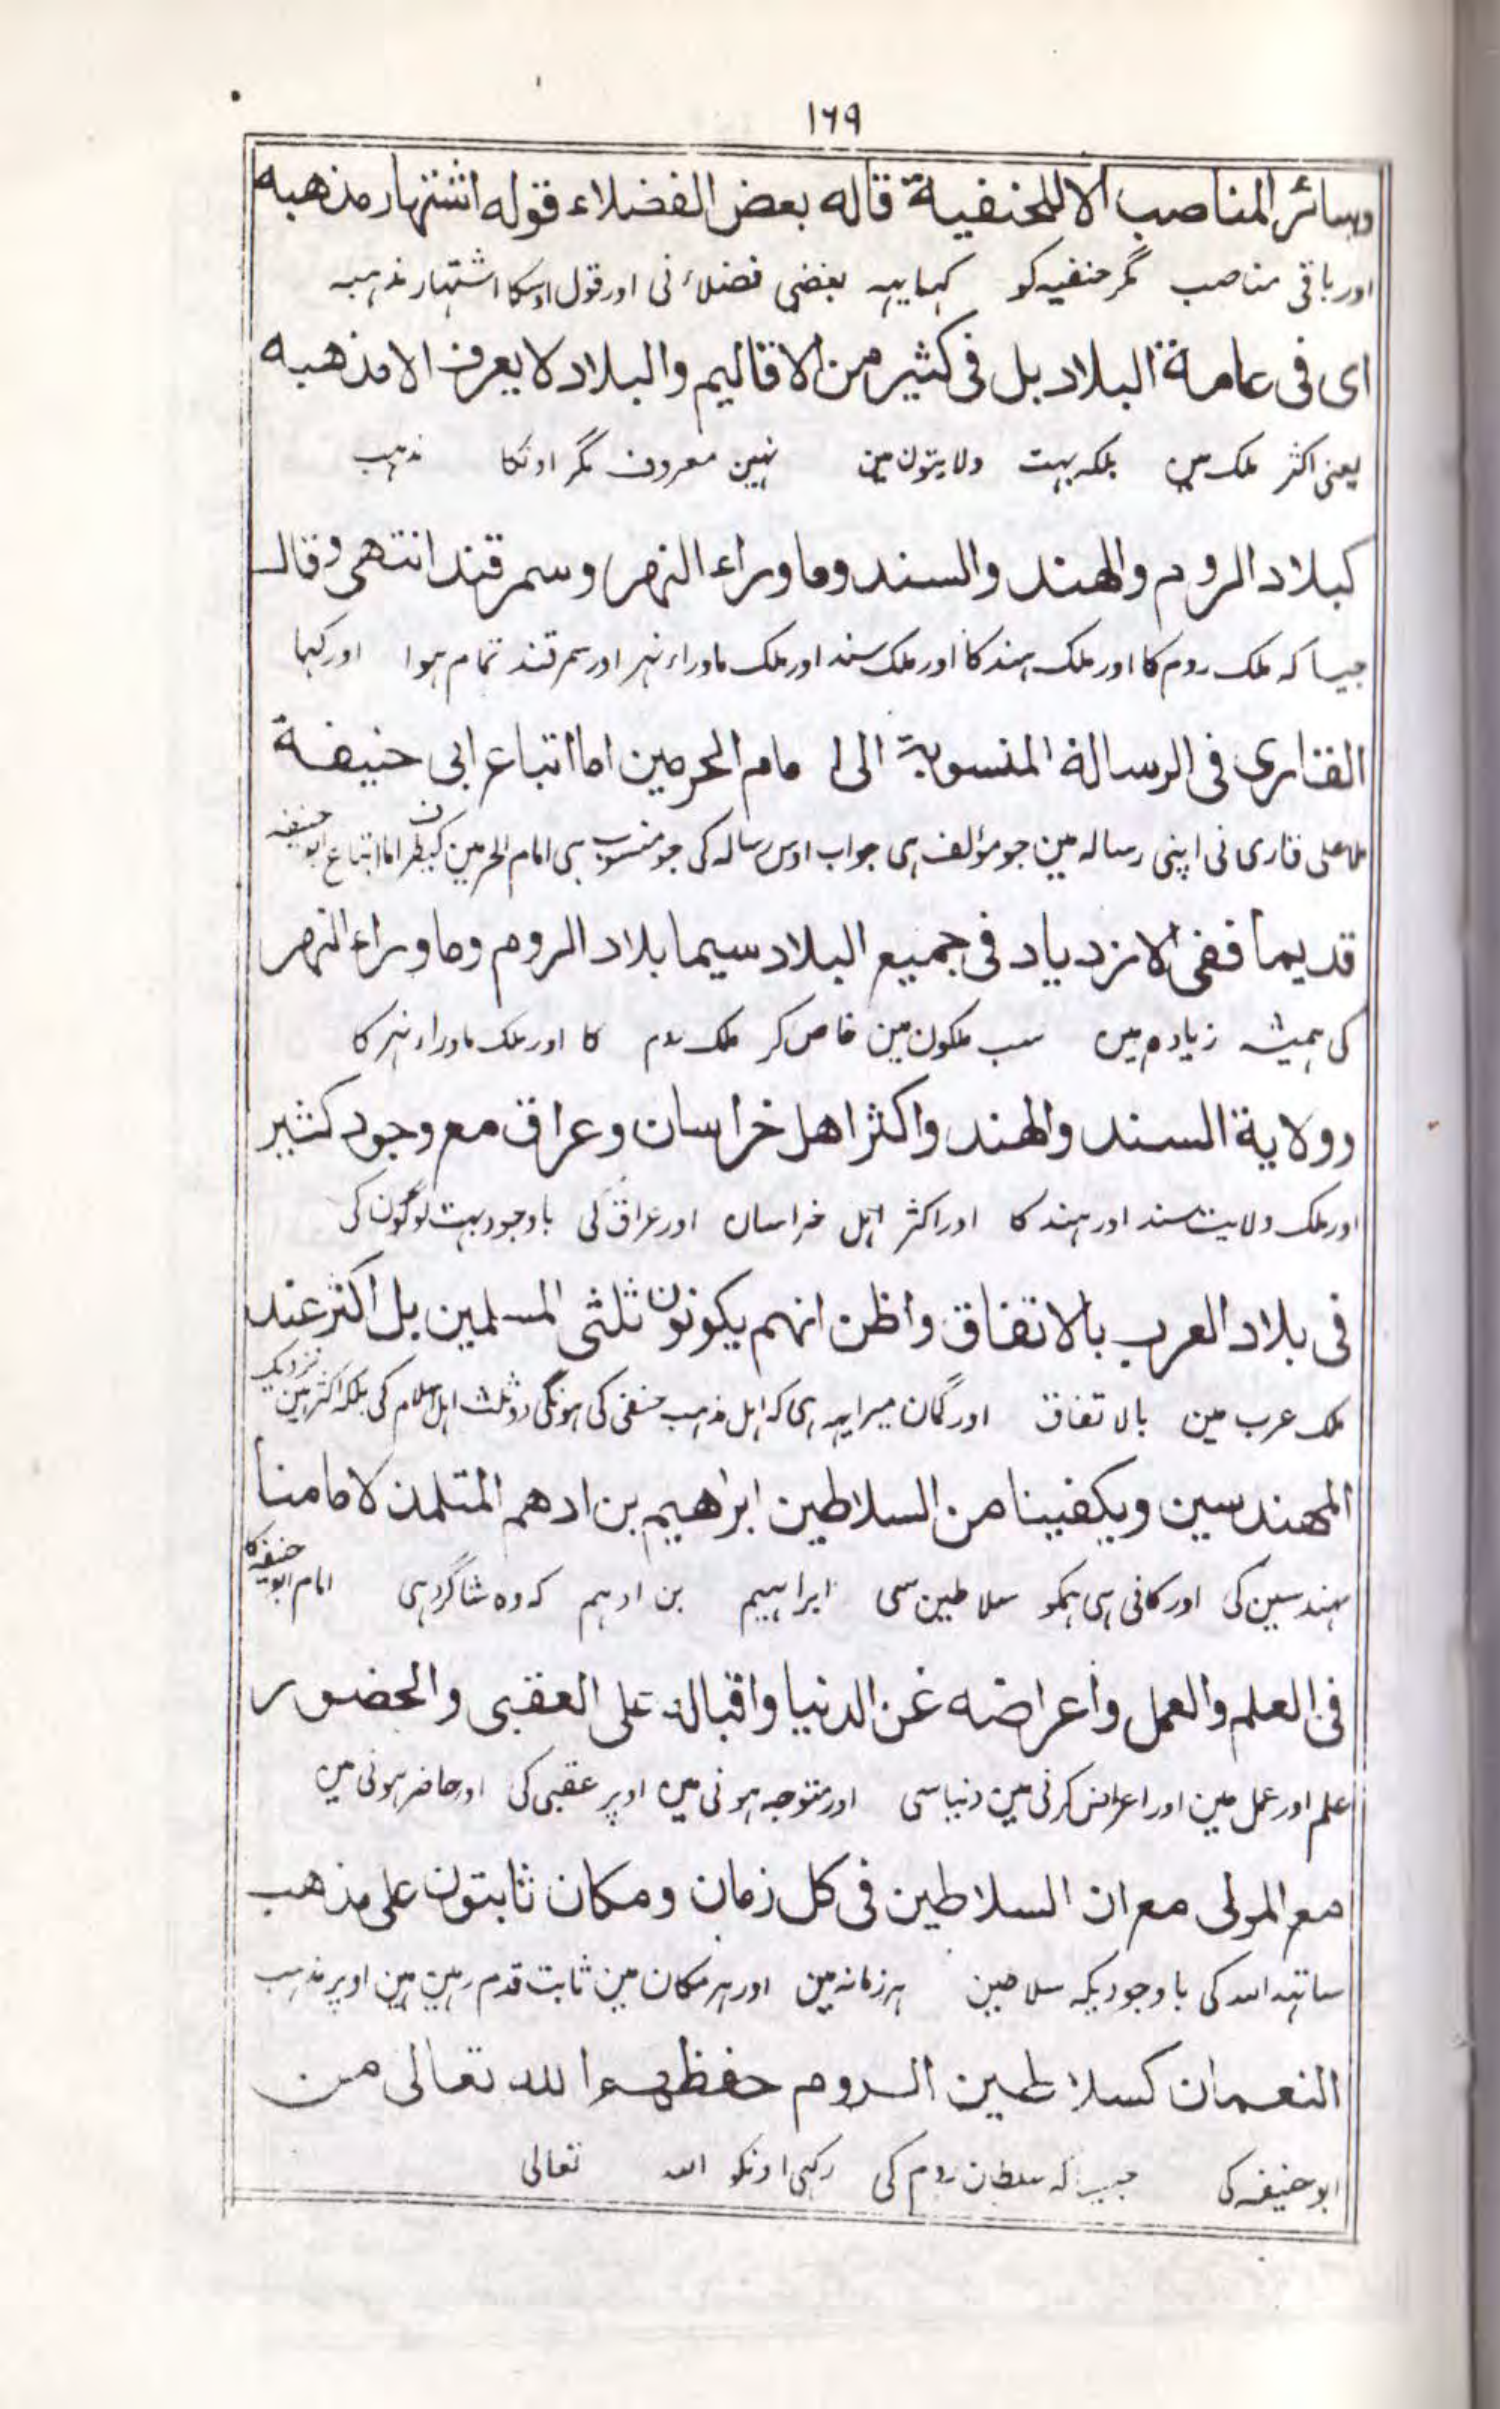 ١٦٩
وسائر المناصب الا للحنفية قاله بعض الفضلاء قوله اشتهار مذهبه
اور باقی مناصب مگر حنفیہ کو کہا یہہ بعضی فضلاء نی اور قول اوسکا اشتہار مذہبہ
ای فی عامة البلاد بل فی کثیر من الاقالیم والبلاد لا یعرف الا مذهبه
یعنی اکثر ملک مین بلکہ بہت ولایتون مین نہین معروف مگر اونکا مذہب
کبلاد الروم والهند والسند وما وراء النهر وسمرقند انتهی وقال
جیسا کہ ملک روم کا اور ملک ہند کا اور ملک سند اور ملک ماوراء نہر اور سمرقند تمام ہوا اور کہا
القاری فی الرسالة المنسوبة الی امام الحرمین اما اتباع ابی حنیفة
ملا علی قاری نی اپنی رسالہ مین جو مؤلف ہی جواب اوس رسالہ کی جو منسوب ہی امام الحرمین کیطرف اما اتباع ابو حنیفہ
قدیما ففی الازدیاد فی جمیع البلاد سیما بلاد الروم وما وراء النهر
کی ہمیشہ زیادہ مین سب ملکون مین خاص کر ملک روم کا اور ملک ماوراء نہر کا
وولایة السند والهند واکثر اهل خراسان وعراق مع وجود کثیر
اور ملک ولایت سند اور ہند کا اور اکثر اہل خراسان اور عراق کی باوجود بہت لوگون کی
فی بلاد العرب بالاتفاق واظن انهم یکونون ثلثی المسلمین بل اکثر عند
ملک عرب مین بالاتفاق اور گمان میرا یہہ ہی کہ اہل مذہب حنفی کی ہونگی دو ثلث اہل اسلام کی بلکہ اکثر ہین نزدیک
المهندسین ویکفینا من السلاطین ابراهیم بن ادهم المتلمذ لامامنا
مہندسین کی اور کافی ہی ہمکو سلاطین سی ابراہیم بن ادہم کہ وہ شاگرد ہی امام ابو حنیفہ کا
فی العلم والعمل واعراضه عن الدنیا واقباله علی العقبی والحضور
علم اور عمل مین اور اعراض کرنی مین دنیا سی اور متوجہ ہونی مین اوپر عقبی کی اور حاضر ہونی مین
مع المولی مع ان السلاطین فی کل زمان ومکان ثابتون علی مذهب
ساتہہ اللہ کی باوجودیکہ سلاطین ہر زمانہ مین اور ہر مکان مین ثابت قدم رہین ہین اوپر مذہب
النعمان کسلاطین الروم حفظهم الله تعالی من
ابو حنیفہ کی جیسا کہ سلطان روم کی رکہی اونکو اللہ تعالی